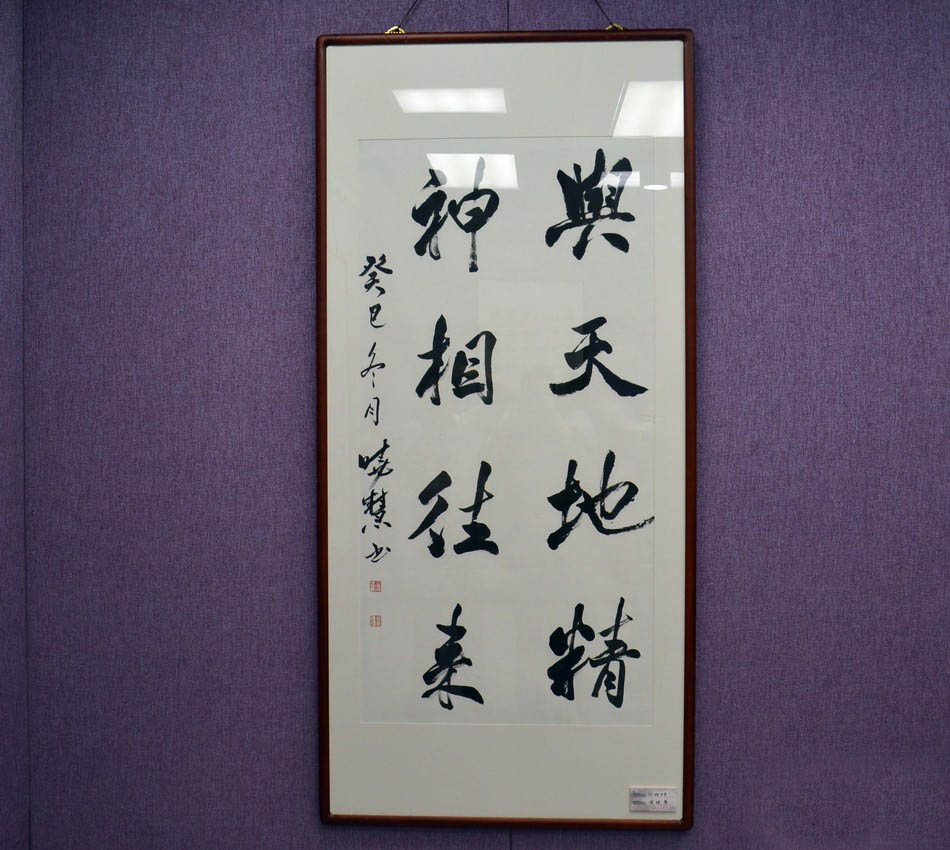 與天地精
神相往来
癸巳冬月曉慧书